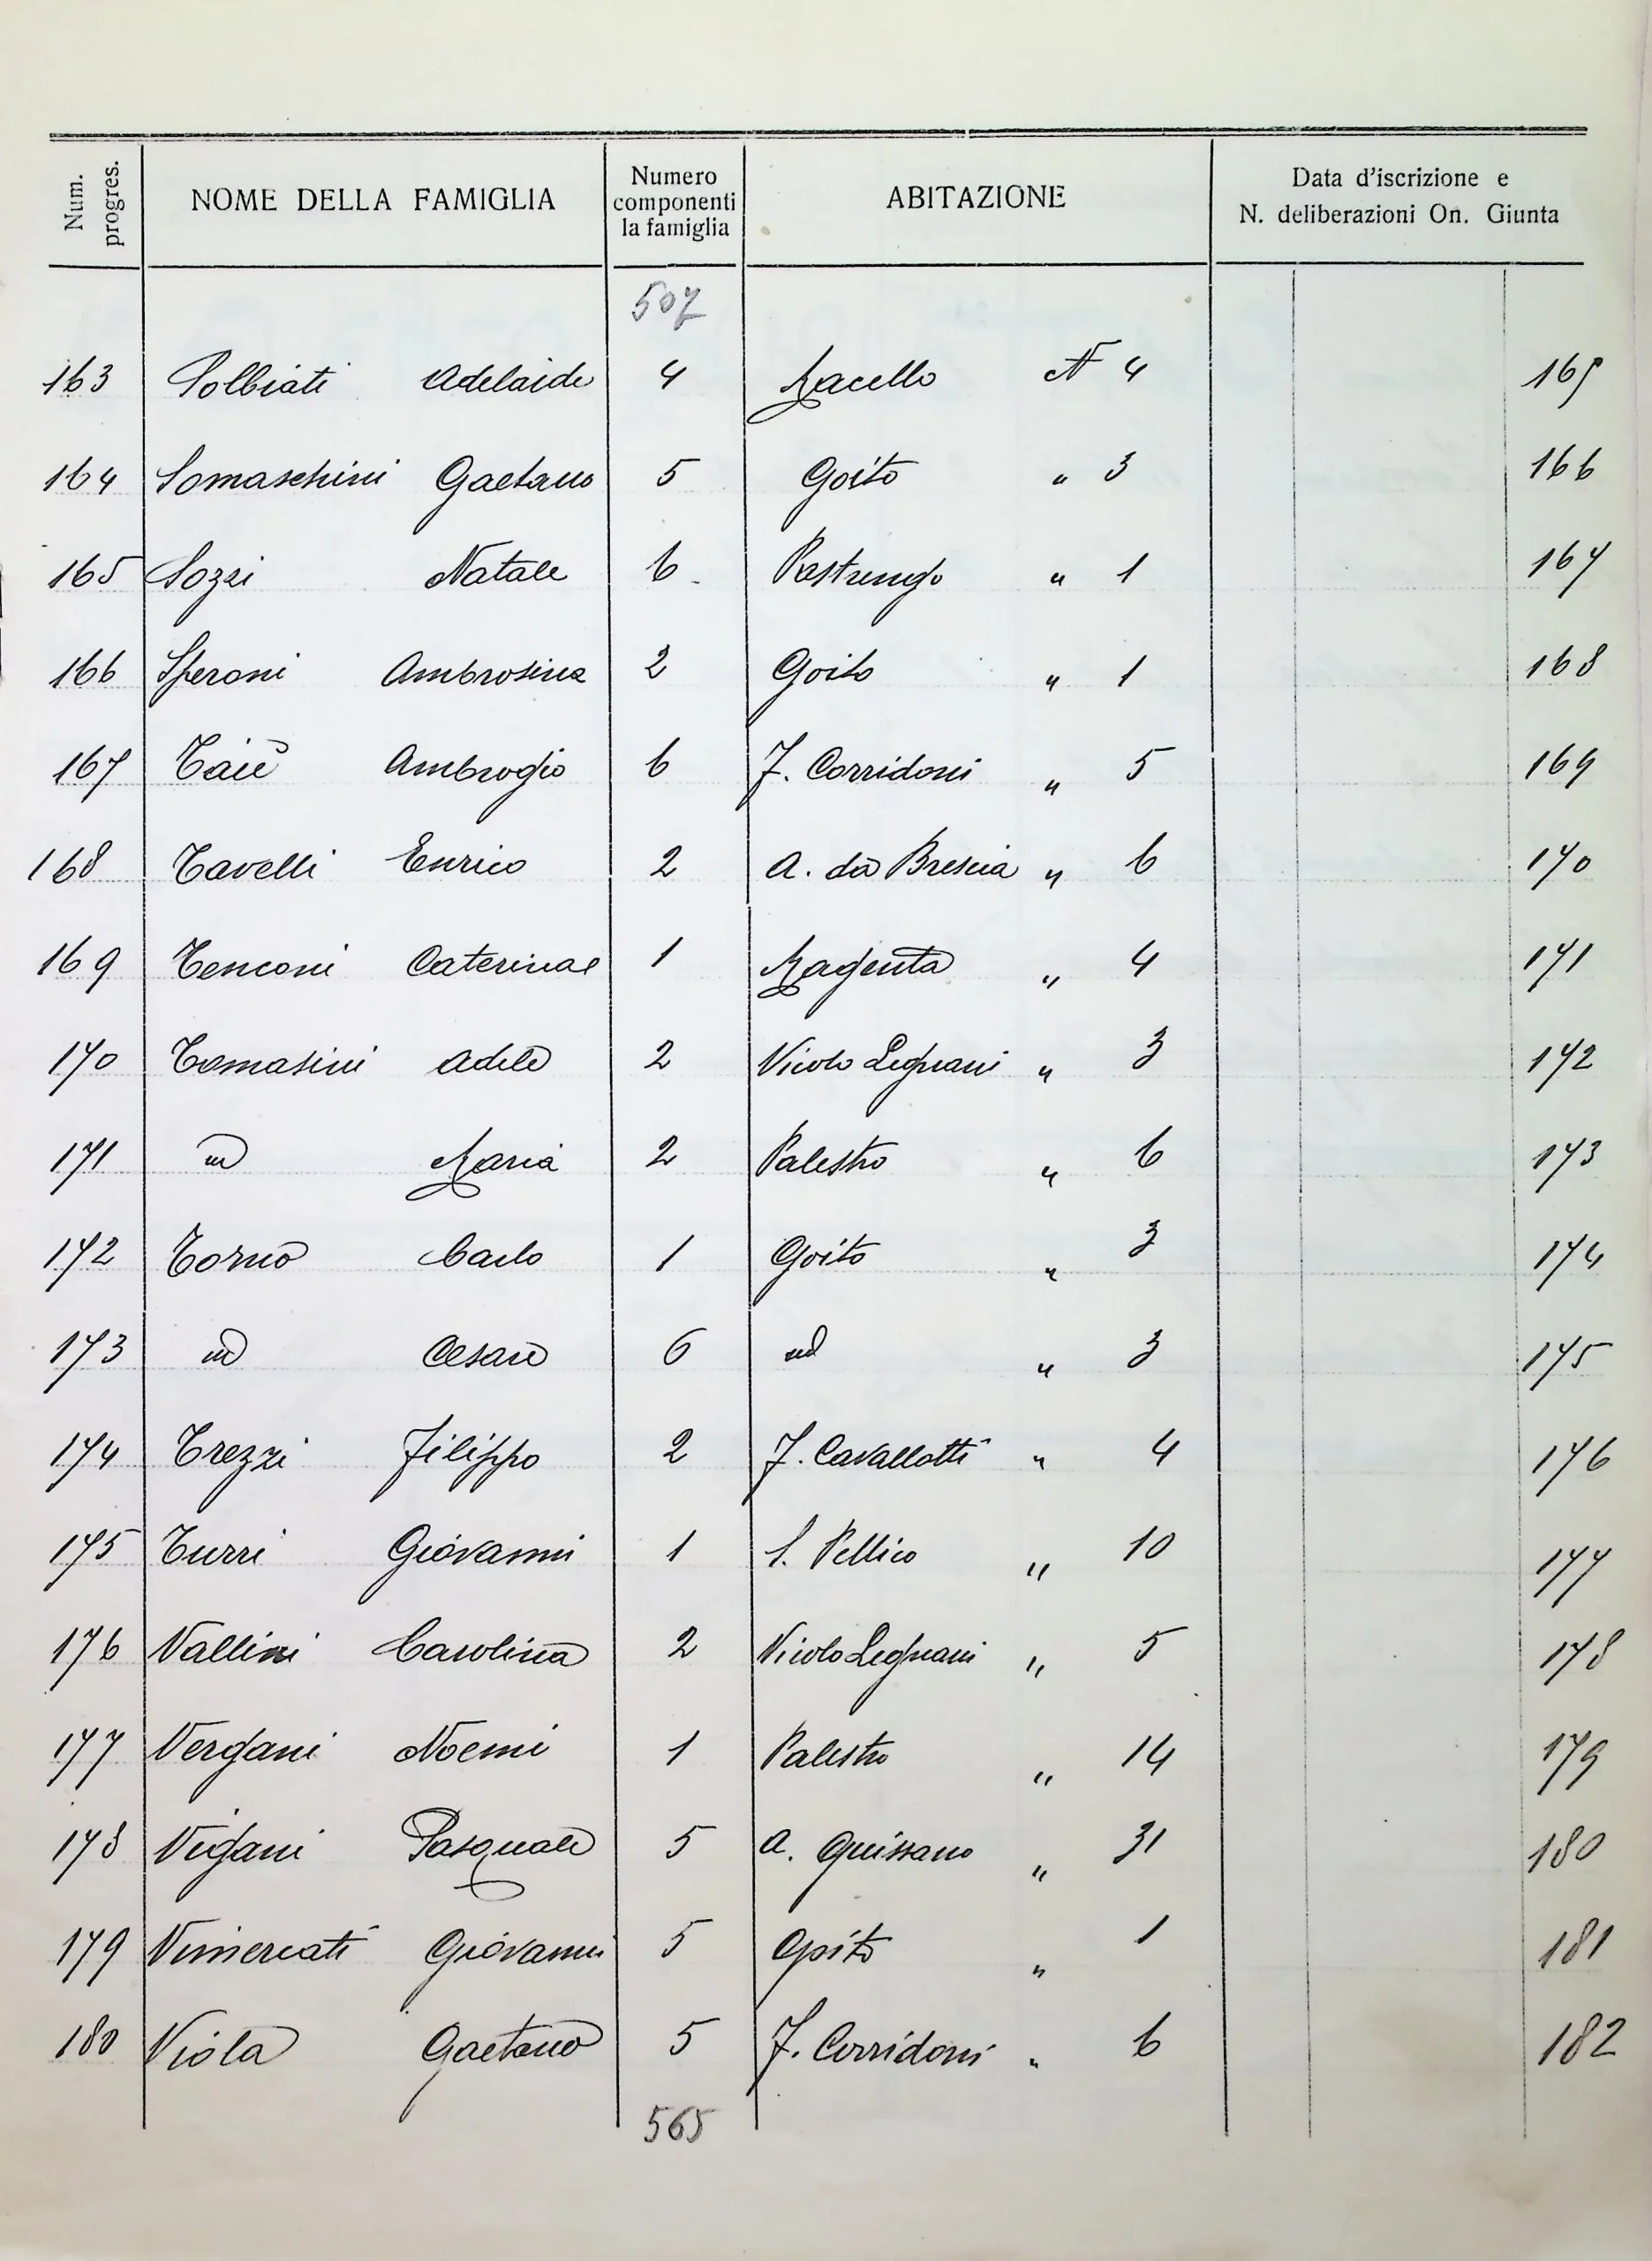 Num. progres. NOME DELLA FAMIGLIA Numero componenti la famiglia ABITAZIONE Data d'iscrizione e N. deliberazioni On. Giunta
507
163 Solbiati Adelaide 4 Macello N 4 165
164 Somaschini Gaetano 5 Goito " 3 166
165 Sozzi Natale 6 Pastrengo " 1 167
166 Speroni Ambrosina 2 Goito " 1 168
167 Taiè Ambrogio 6 F. Corridoni " 5 169
168 Tavelli Enrico 2 A. da Brescia " 6 170
169 Tenconi Caterina 1 Magenta " 4 171
170 Tomasini Adele 2 Vicolo Legnani " 3 172
171 id Maria 2 Palestro " 6 173
172 Torno Carlo 1 Goito " 3 174
173 id Cesare 6 id " 3 175
174 Trezzi Filippo 2 F. Cavallotti " 4 176
175 Turri Giovanni 1 S. Pellico " 10 177
176 Vallini Carolina 2 Vicolo Legnani " 5 178
177 Vergani Noemi 1 Palestro " 14 179
178 Vigani Pasquale 5 A. Guissano " 31 180
179 Vimercati Giovanni 5 Goito " 1 181
180 Viola Gaetano 5 F. Corridoni " 6 182
565